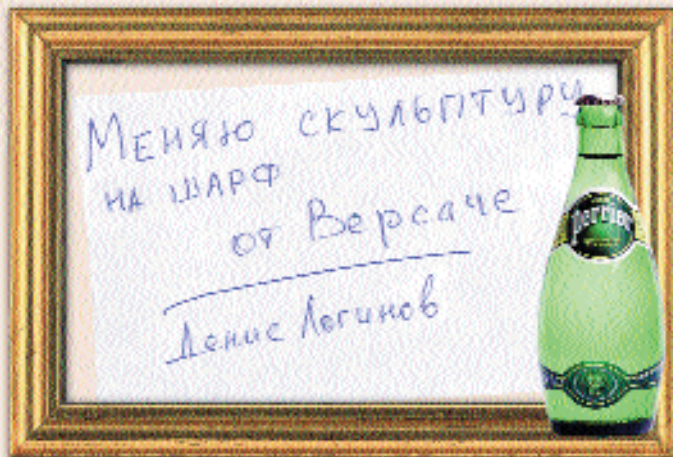 Меняю скульптуру
на шарф
от Версаче
Денис Логинов
perrier